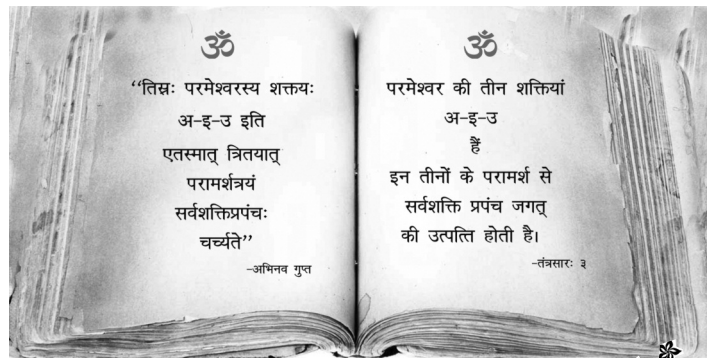 ॐ
“तिस्रः परमेश्वरस्य शक्तयः
अ-इ-उ इति
एतस्मात् त्रितयात्
परामर्शत्रयं
सर्वशक्तिप्रपंचः
चर्च्यते”
-अभिनव गुप्त
ॐ
परमेश्वर की तीन शक्तियां
अ-इ-उ
हैं
इन तीनों के परामर्श से
सर्वशक्ति प्रपंच जगत्
की उत्पत्ति होती है।
-तंत्रसारः ३